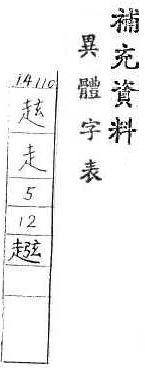 補充資料
異體字表
14110
走
5
12